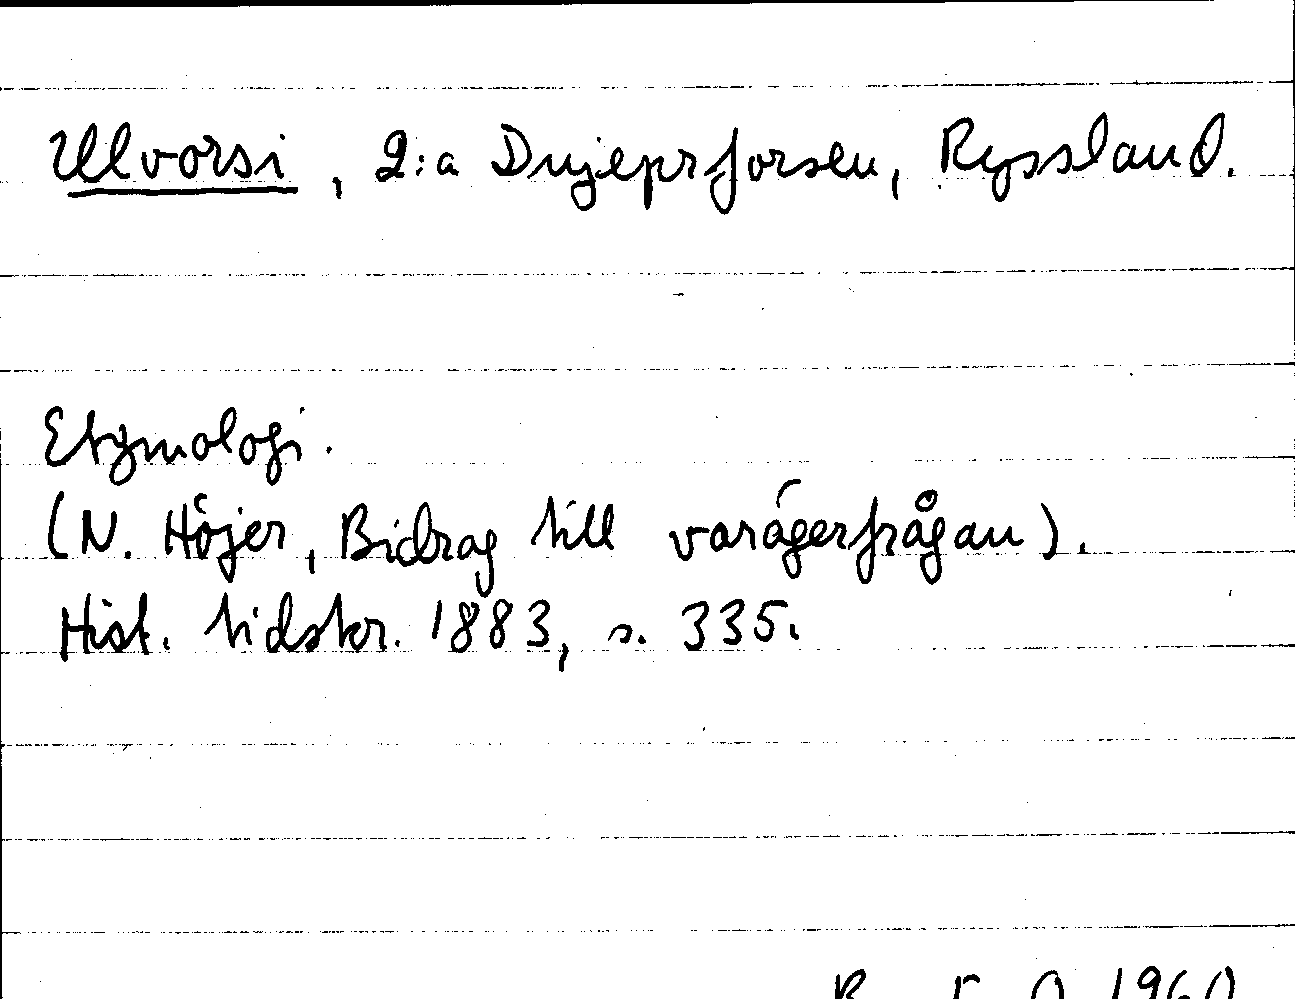 Ulvorsi, 2:a Dnjeprforsen, Ryssland.
Etymologi.
(N. Höjer, Bidrag till varägerfrågan).
Hist. tidskr. 1883, s. 335.
1960